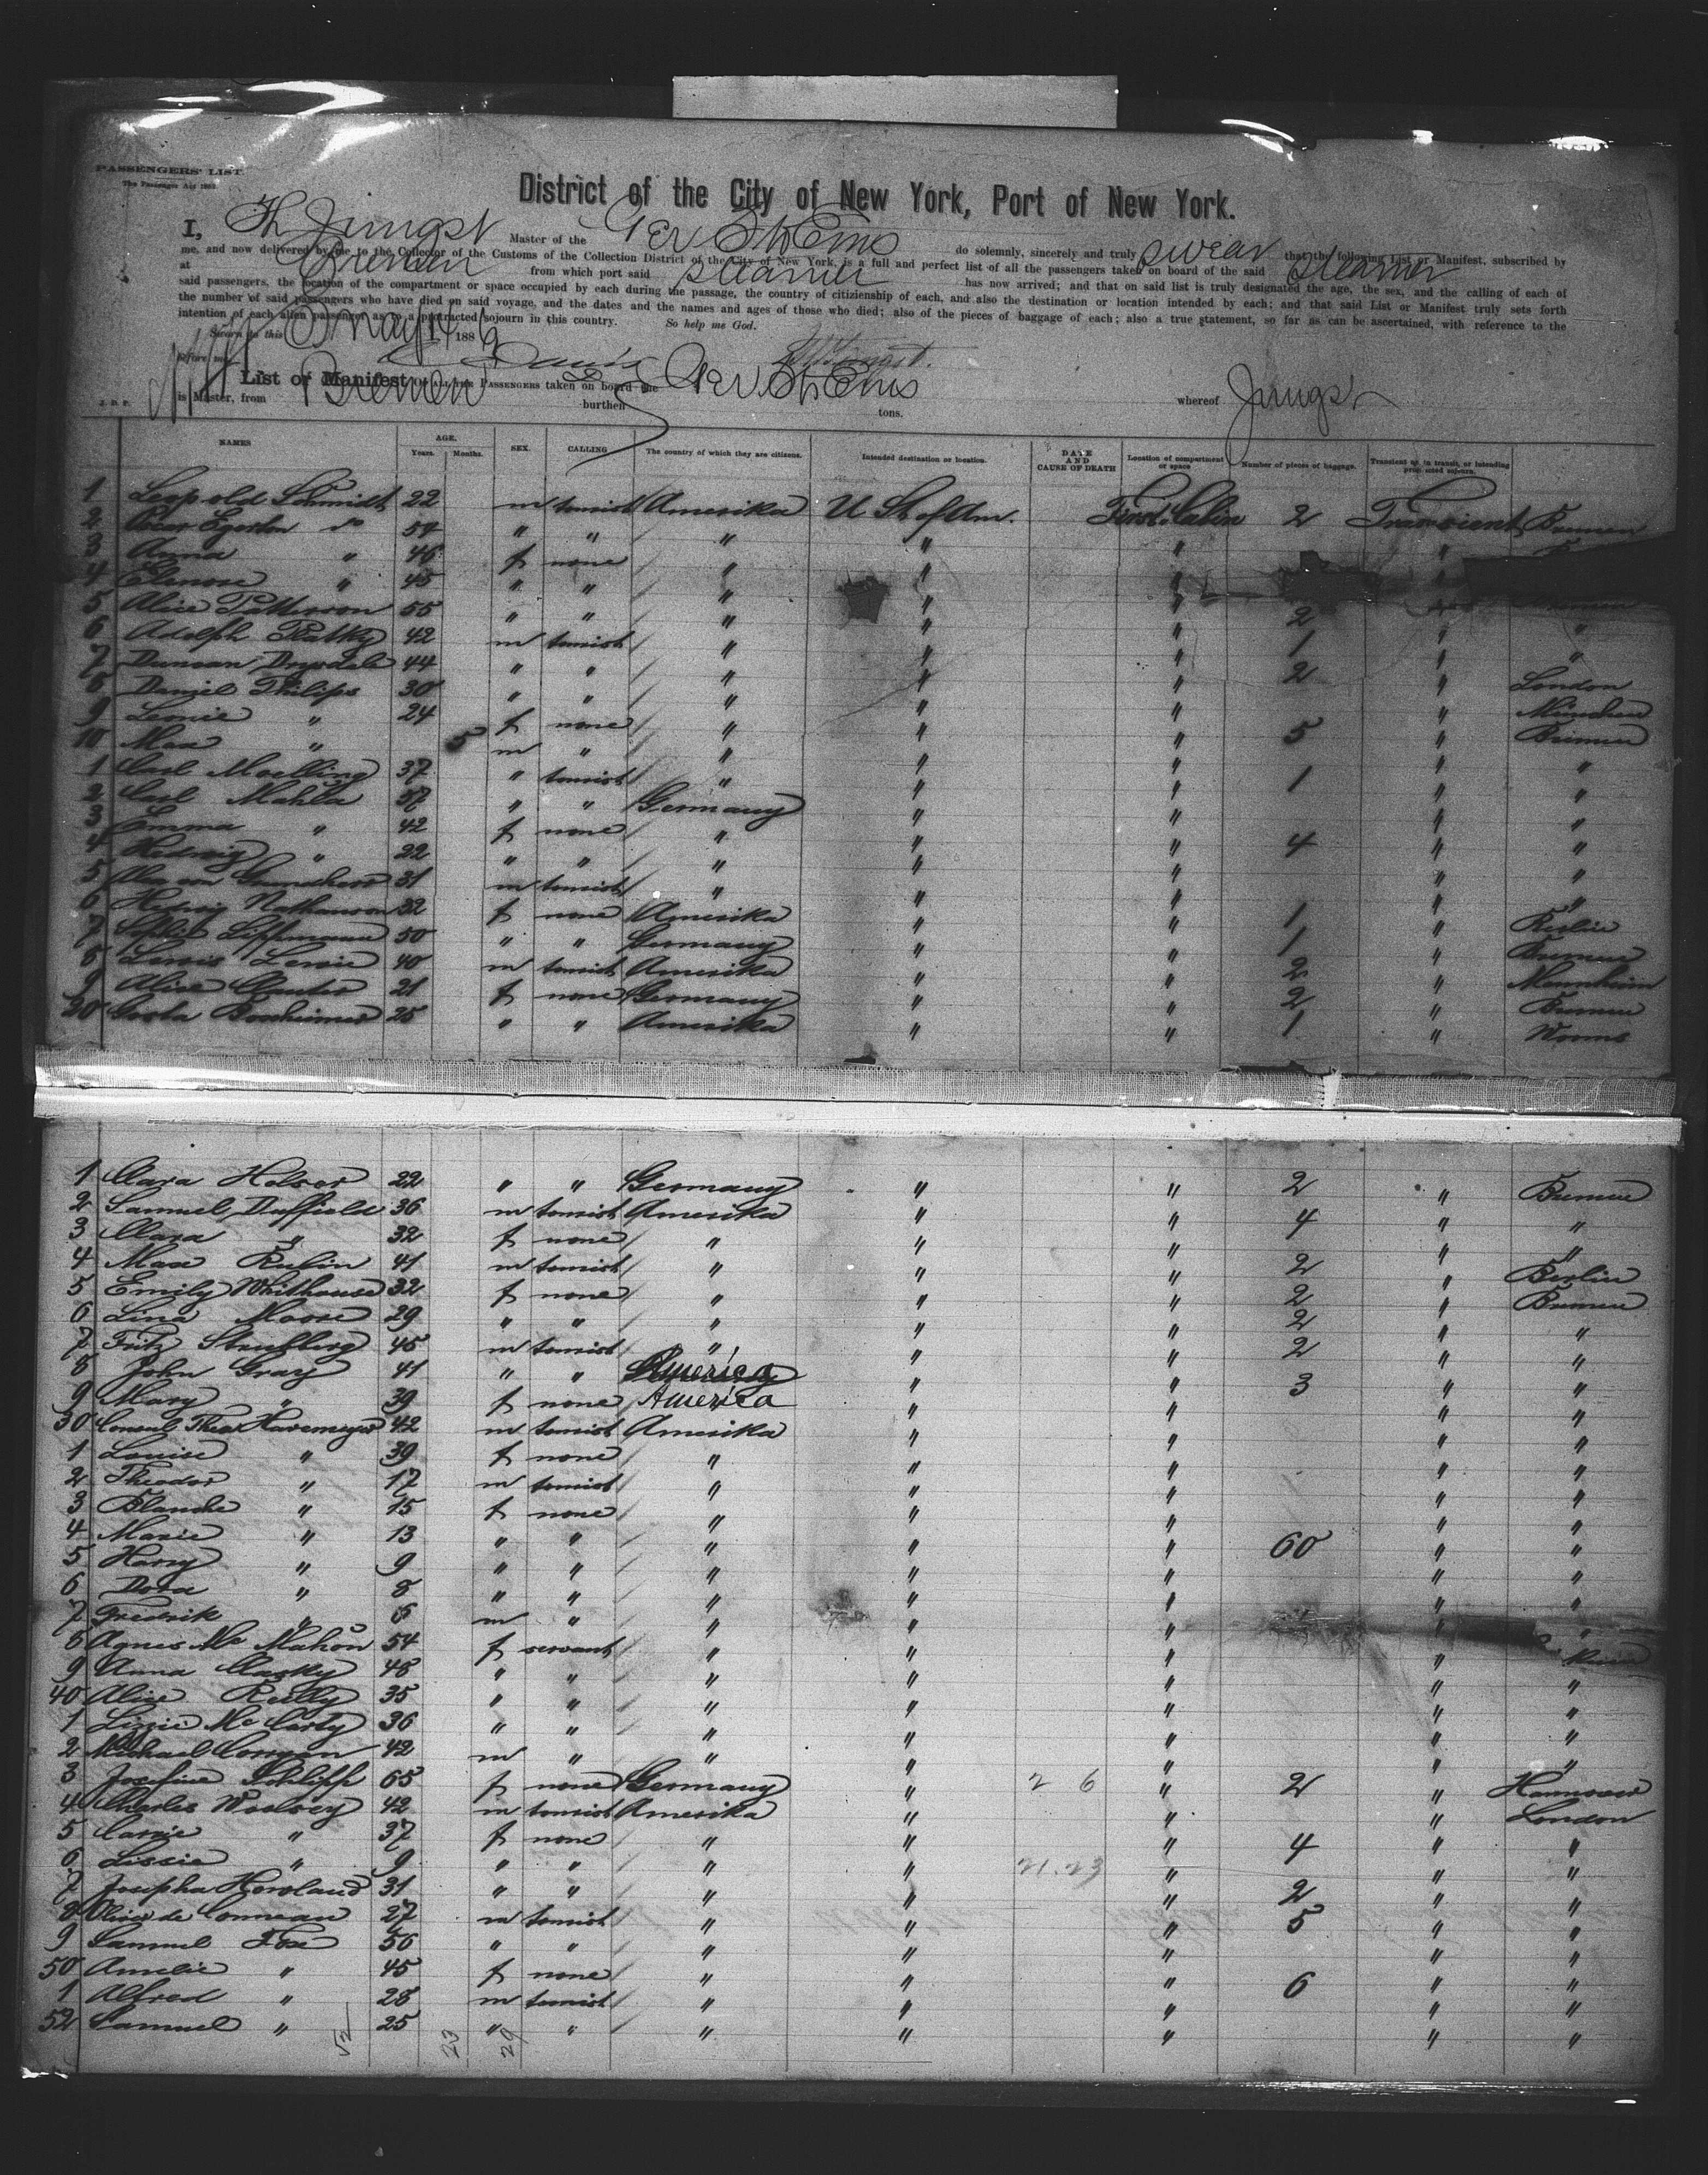 PASSENGERS' LIST.
The Passenger Act 1882
District of the City of New York, Port of New York.
I, Th Jüngst Master of the Ger St Ems do solemnly, sincerely and truly swear that the following List or Manifest, subscribed by
me, and now delivered by me to the Collector of the Customs of the Collection District of the City of New York, is a full and perfect list of all the passengers taken on board of the said steamer
at Bremen from which port said steamer has now arrived; and that on said list is truly designated the age, the sex, and the calling of each of
said passengers, the location of the compartment or space occupied by each during the passage, the country of citizenship of each, and also the destination or location intended by each; and that said List or Manifest truly sets forth
the number of said passengers who have died on said voyage, and the dates and the names and ages of those who died; also of the pieces of baggage of each; also a true statement, so far as can be ascertained, with reference to the
intention of each alien passenger as to a protracted sojourn in this country. So help me God.
Sworn to this May 14 1886
before me
List or Manifest OF ALL THE PASSENGERS taken on board the Ger. St Ems whereof Jüngst
is Master, from Bremen burthen tons.
J. D. P.
NAMES AGE. Years. Months. SEX. CALLING The country of which they are citizens. Intended destination or location. DATE AND CAUSE OF DEATH Location of compartment or space Number of pieces of baggage. Transient or in transit, or intending protracted sojourn.
1 Leopold Schmidt 22 m tourist Amerika U St of Am. First Cabin 2 Transient Bremen
2 do 54 " " " " " "
3 Anna " 46 f none " " " "
4 Elenore " 45 " " " " " "
5 Alice Patterson 55 " " " " " 2 " "
6 Adolph 42 m tourist " " " 1 " "
7 Duncan Drysdale 44 " " " " " 2 " London
8 Daniel Philips 30 " " " " " " München
9 Leonie " 24 f none " " " 5 " Bremen
10 Max " 5 m " " " " " "
1 Carl Moelling 37 " tourist " " " 1 " "
2 Carl Mahla 57 " " Germany " " " "
3 Emma " 42 f none " " " " "
4 Hedwig " 22 " " " " " 4 " "
5 31 m tourist " " " " "
6 Hedwig Nathanson 32 f none Amerika " " 1 " Berlin
7 Sophie Lippmann 50 " " Germany " " 1 " Bremen
8 Lewis Levie 40 m tourist Amerika " " 2 " Mannheim
9 Alice 21 f none Germany " " 2 " Bremen
20 25 " " Amerika " " 1 " Worms
1 Clara 22 " " Germany " " 2 " Bremen
2 Samuel Duffield 36 m tourist Amerika " " 4 " "
3 Clara " 32 f none " " " " "
4 Max Rubin 41 m tourist " " " 2 " Berlin
5 Emily Whithouse 32 f none " " " 2 " Bremen
6 Lina Moore 29 " " " " " 2 " "
7 Fritz 45 m tourist " " " 2 " "
8 John Gray 41 " " America " " 3 " "
9 Mary " 39 f none America " " " "
30 Consul Theo Havemeyer 42 m tourist Amerika " " " "
1 Louise " 39 f none " " " " "
2 Theodor " 17 m tourist " " " " "
3 Blanche " 15 f none " " " " "
4 Marie " 13 " " " " " 60 " "
5 Harry " 9 " " " " " " "
6 Dora " 8 " " " " " " "
7 Fredrik " 6 m " " " " " "
8 Agnes Mc Mahon 54 f servant " " " "
9 Anna 48 " " " " " " "
40 Alice Reilly 35 " " " " " " "
1 Lizzie Mc Carty 36 " " " " " " "
2 Michael Corrigan 42 m " " " " " "
3 Josefine Schlipf 65 f none Germany " 2 6 " 2 " Hannover
4 Charles Woolsey 42 m tourist Amerika " " " London
5 Carrie " 37 f none " " " 4 " "
6 Lissie " 9 " " " " 21.23 " " "
7 Josepha Howland 31 " " " " " 2 " "
8 27 m tourist " " " 5 " "
9 Samuel Fox 56 " " " " " " "
50 Amelie " 45 f none " " " 6 " "
1 Alfred " 28 m tourist " " " " "
52 Samuel " 25 " " " " " " "
52 23 29